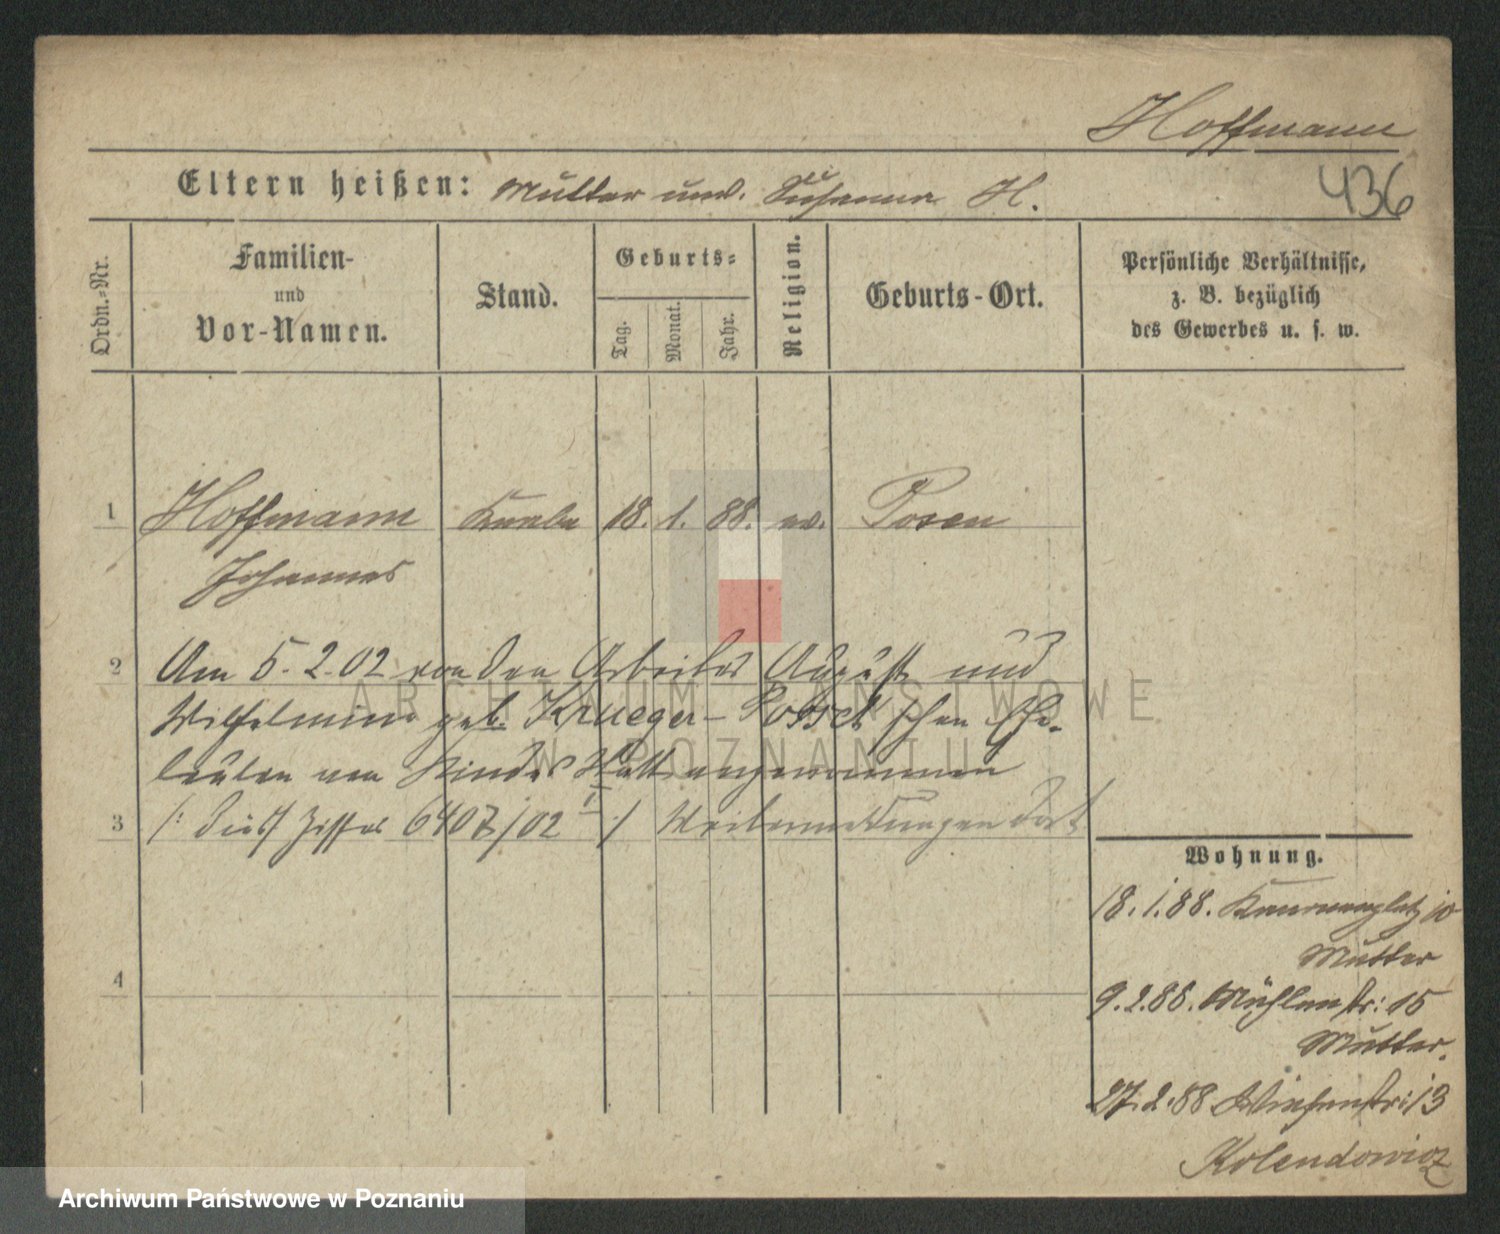 Hoffmann
436
Eltern heißen: Mutter unv. Susanna H.
Ordn.-Nr.
Familien-
und
Vor-Namen.
Stand.
Geburts-
Tag.
Monat.
Jahr.
Religion.
Geburts-Ort.
Persönliche Verhältnisse,
z. B. bezüglich
des Gewerbes u. s. w.
1 Hoffmann Knabe 18. 1. 88. ev. Posen
Johannes
2 Am 5. 2. 02 von den Arbeiter August und
Wilhelmine geb. Krueger-
schen Ehe-
leuten an Kindes Statt angenommen
3 /: 6407/02 I :/
4
Wohnung.
18. 1. 88. 10
Mutter
9. 2. 88. Mühlenstr: 15
Mutter.
27. 2. 88 Wiesenstr: 13
Kolendowicz
ARCHIWUM PAŃSTWOWE
W POZNANIU
Archiwum Państwowe w Poznaniu